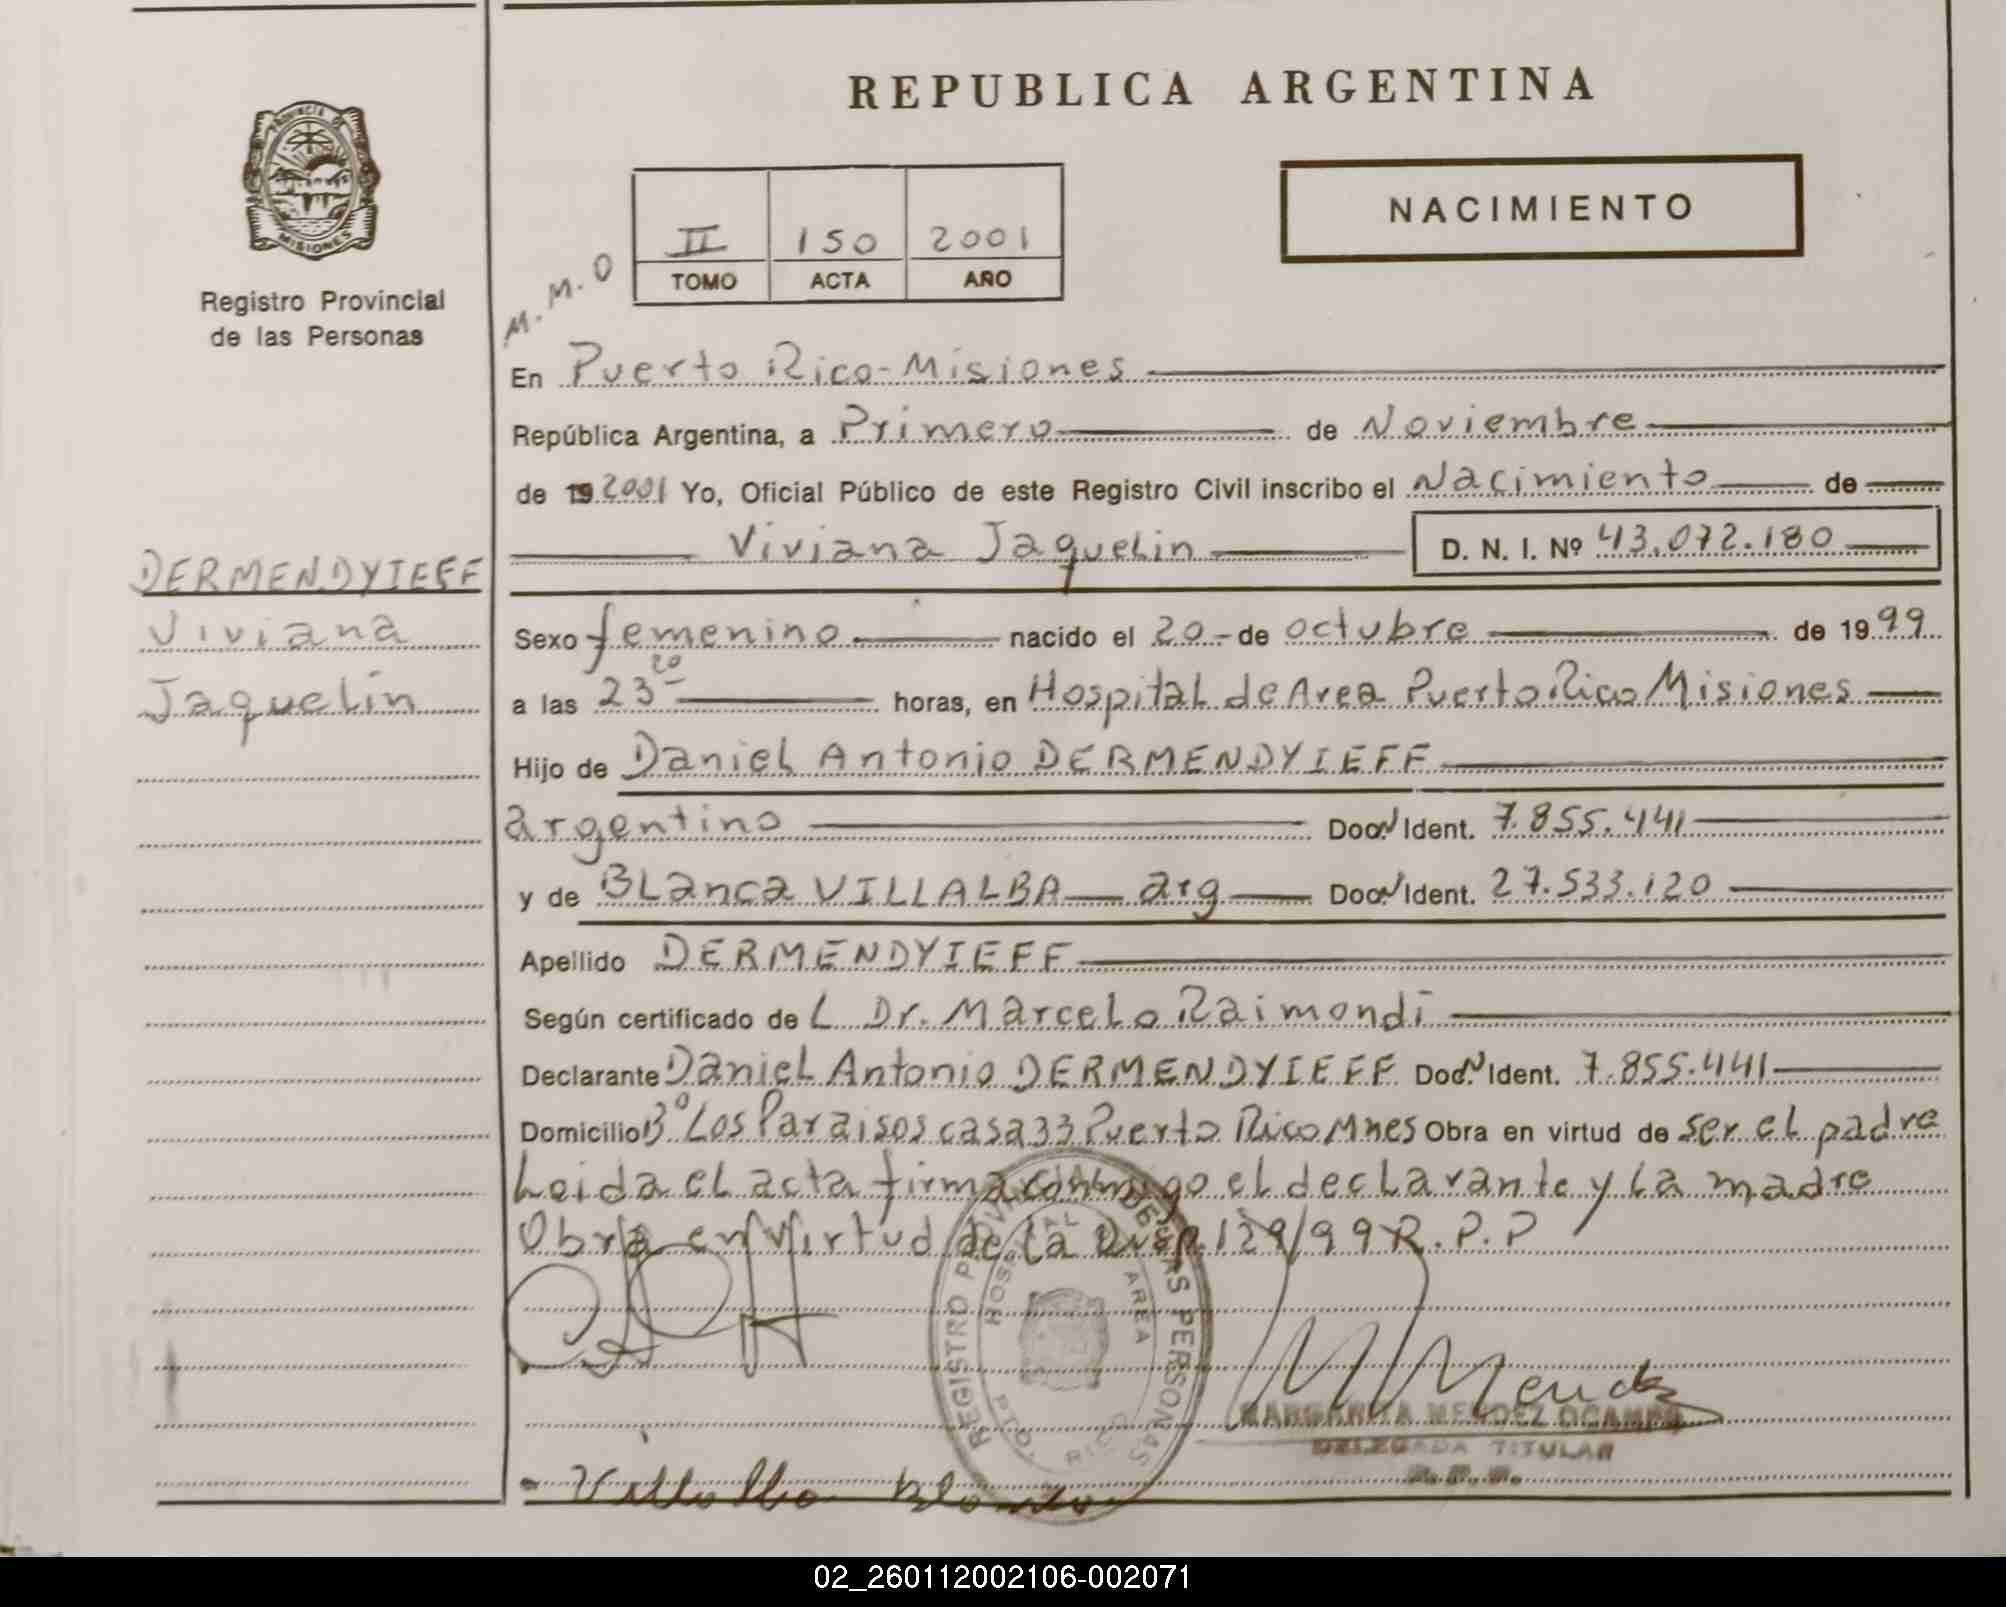 REPUBLICA ARGENTINA
PROVINCIA DE
MISIONES
Registro Provincial
de las Personas
NACIMIENTO
II 150 2001
TOMO ACTA AÑO
M.M.O
En Puerto Rico-Misiones
República Argentina, a Primero de Noviembre
de 19 2001 Yo, Oficial Público de este Registro Civil inscribo el Nacimiento de
Viviana Jaquelin D. N. I. Nº 43.072.180
DERMENDYIEFF
Viviana
Jaquelin
Sexo femenino nacido el 20 - de octubre de 1999
a las 23 20 horas, en Hospital de Area Puerto Rico Misiones
Hijo de Daniel Antonio DERMENDYIEFF
argentino Doc. N Ident. 7.855.441
y de Blanca VILLALBA arg Doc. N Ident. 27.533.120
Apellido DERMENDYIEFF
Según certificado de L Dr. Marcelo Raimondi
Declarante Daniel Antonio DERMENDYIEFF Doc. N Ident. 7.855.441
Domicilio Bº Los Paraisos casa 33 Puerto Rico Mnes Obra en virtud de ser el padre
Leida el acta firma conmigo el declarante y la madre
Obra en virtud de la Disp. 129/99 R.P.P
REGISTRO PROVINCIAL DE LAS PERSONAS
HOSPITAL AREA
PTO. RICO
M Mendez
MARGARITA MENDEZ OCAMPO
DELEGADA TITULAR
R.P.P.
- Villalba Blanca
02_260112002106-002071